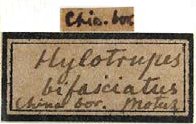 Chin. bor.
Hylotrupes
bifasciatus
China bor. Motsch